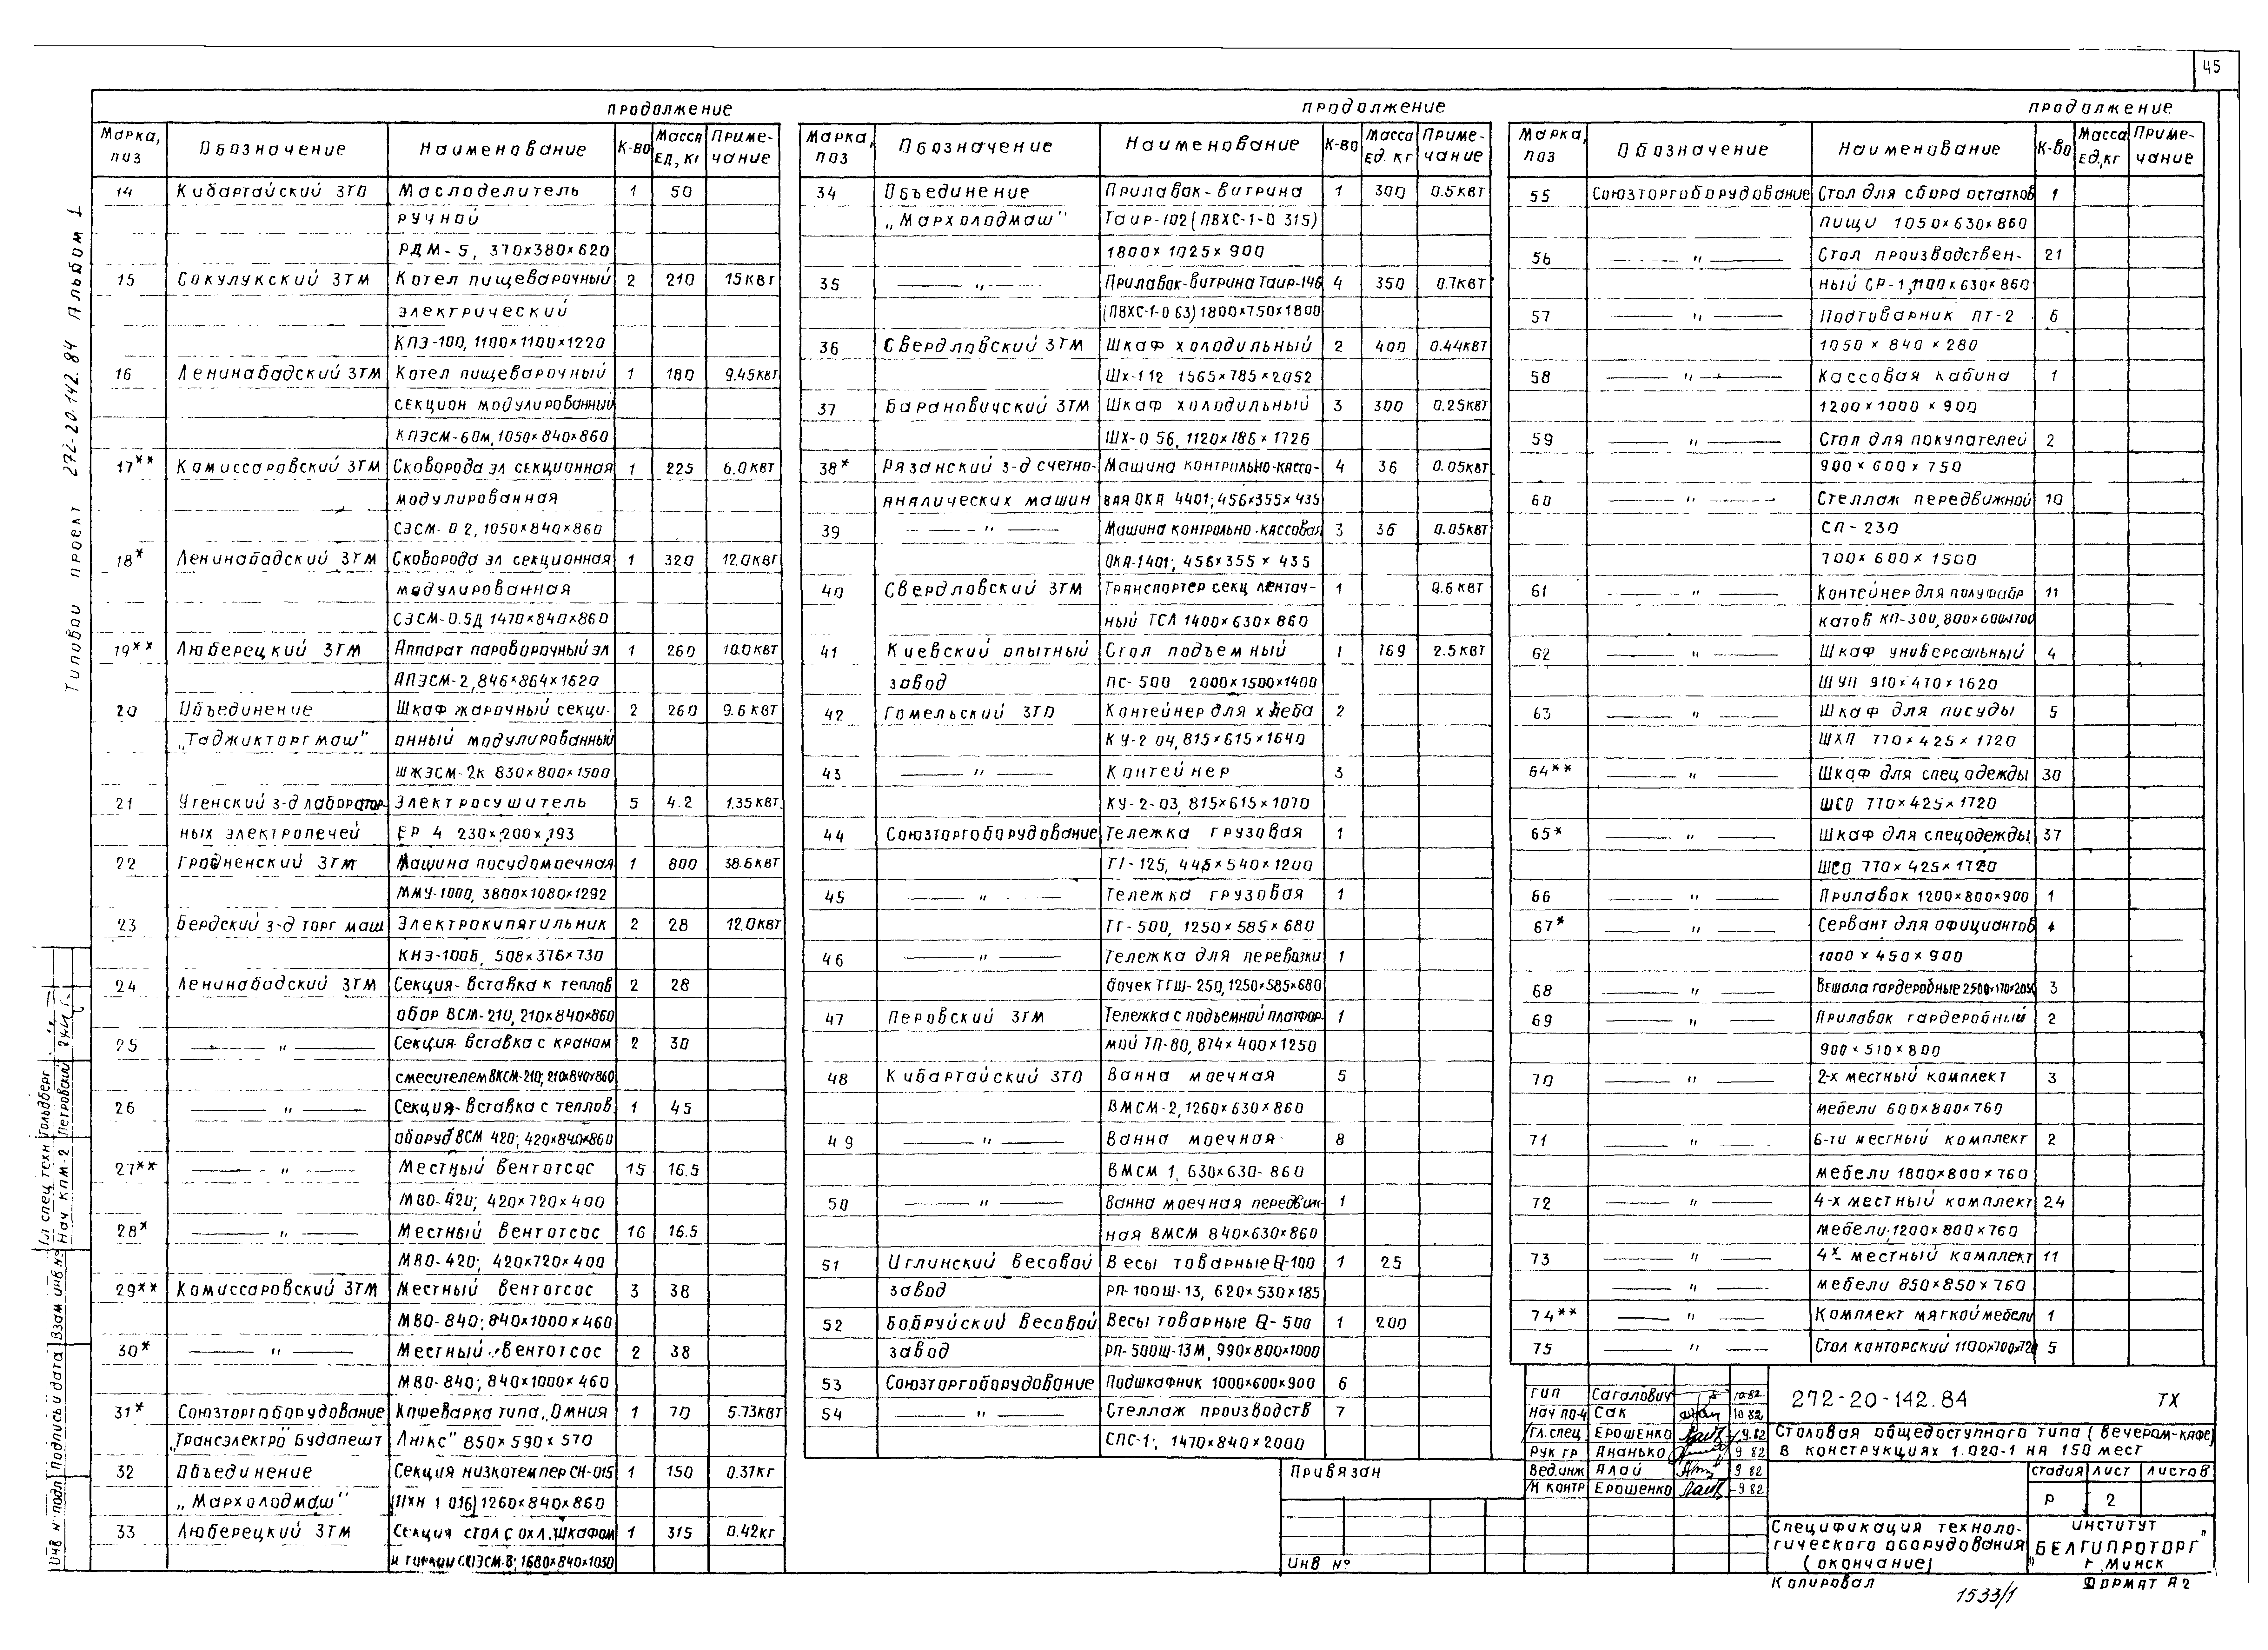 45
Типовой проект 272-20-142.84 Альбом 1
продолжение
Марка, поз Обозначение Наименование К-во Масса ед, кг Приме-чание
14 Кибартайский ЗТО Маслоделитель 1 50
ручной
РДМ-5, 370×380×620
15 Сокулукский ЗТМ Котел пищеварочный 2 210 15 квт
электрический
КПЭ-100, 1100×1100×1220
16 Ленинабадский ЗТМ Котел пищеварочный 1 180 9.45 квт
секцион модулированный
КПЭСМ-60м, 1050×840×860
17** Комиссаровский ЗТМ Сковорода эл секционная 1 225 6.0 квт
модулированная
СЭСМ-0 2, 1050×840×860
18* Ленинабадский ЗТМ Сковорода эл секционная 1 320 12.0 квт
модулированная
СЭСМ-0.5Д 1470×840×860
19** Люберецкий ЗТМ Аппарат пароворочный эл 1 260 10.0 квт
АПЭСМ-2, 846×864×1620
20 Объединение Шкаф жарочный секци- 2 260 9.6 квт
„Таджикторгмаш" онный модулированный
ШЖЭСМ-2к 830×800×1500
21 Утенский з-д лаборатор- Электросушитель 5 4.2 1.35 квт
ных электропечей ЕР 4 230×200×193
22 Гродненский ЗТМ Машина посудомоечная 1 800 38.6 квт
ММУ-1000, 3800×1080×1292
23 Бердский з-д торг маш Электрокипятильник 2 28 12.0 квт
КНЭ-100Б, 508×376×730
24 Ленинабадский ЗТМ Секция-вставка к теплов 2 28
обор ВСМ-210, 210×840×860
25 —— " —— Секция вставка с краном 2 30
смесителем ВКСМ-210; 210×840×860
26 —— " —— Секция-вставка с теплов. 1 45
оборуд ВСМ 420; 420×840×860
27** —— " —— Местный вентотсос 15 16.5
МВО-420; 420×720×400
28* —— " —— Местный вентотсос 16 16.5
МВО-420; 420×720×400
29** Комиссаровский ЗТМ Местный вентотсос 3 38
МВО-840; 840×1000×460
30* —— " —— Местный вентотсос 2 38
МВО-840; 840×1000×460
31* Союзторгоборудование Кофеварка типа „Омния 1 70 5.73 квт
„Трансэлектро" Будапешт Люкс" 850×590×570
32 Объединение Секция низкотемпер СН-015 1 150 0.37 кг
„Мархолодмаш" (ПХН 1 0.16) 1260×840×860
33 Люберецкий ЗТМ Секция стол с охл. шкафом 1 315 0.42 кг
и горкой СОЭСМ-3; 1680×840×1030
продолжение
Марка, поз Обозначение Наименование К-во Масса ед. кг Приме-чание
34 Объединение Прилавок-витрина 1 300 0.5 квт
„Мархолодмаш" Таир-102 (ПВХС-1-0 315)
1800×1025×900
35 —— " —— Прилавок-витрина Таир-146 4 350 0.7 квт
(ПВХС-1-0 63) 1800×750×1800
36 Свердловский ЗТМ Шкаф холодильный 2 400 0.44 квт
Шх-1 12 1565×785×2052
37 Барановичский ЗТМ Шкаф холодильный 3 300 0.25 квт
ШХ-0 56, 1120×786×1726
38* Рязанский з-д счетно- Машина контрольно-кассо- 4 36 0.05 квт
аналических машин вая ОКА 4401; 456×355×435
39 —— " —— Машина контрольно-кассовая 3 36 0.05 квт
ОКА-1401; 456×355×435
40 Свердловский ЗТМ Транспортер секц ленточ- 1 0.6 квт
ный ТСЛ 1400×630×860
41 Киевский опытный Стол подъемный 1 169 2.5 квт
завод ПС-500 2000×1500×1400
42 Гомельский ЗТО Контейнер для хлеба 2
КУ-2 04, 815×615×1640
43 —— " —— Контейнер 3
КУ-2-03, 815×615×1070
44 Союзторгоборудование Тележка грузовая 1
ТГ-125, 445×540×1200
45 —— " —— Тележка грузовая 1
ТГ-500, 1250×585×680
46 —— " —— Тележка для перевозки 1
бочек ТГШ-250, 1250×585×680
47 Перовский ЗТМ Тележка с подъемной платфор- 1
мой ТП-80, 874×400×1250
48 Кибартайский ЗТО Ванна моечная 5
ВМСМ-2, 1260×630×860
49 —— " —— Ванна моечная 8
ВМСМ 1, 630×630-860
50 —— " —— Ванна моечная передвиж- 1
ная ВМСМ 840×630×860
51 Иглинский весовой Весы товарные Q-100 1 25
завод РП-100Ш-13, 620×530×185
52 Бобруйский весовой Весы товарные Q-500 1 200
завод РП-500Ш-13М, 990×800×1000
53 Союзторгоборудование Подшкафник 1000×600×900 6
54 —— " —— Стеллаж производств 7
СПС-1; 1470×840×2000
продолжение
Марка, поз Обозначение Наименование К-во Масса ед, кг Приме-чание
55 Союзторгоборудование Стол для сбора остатков 1
пищи 1050×630×860
56 —— " —— Стол производствен- 21
ный СР-1, 1100×630×860
57 —— " —— Подтоварник ПТ-2 6
1050×840×280
58 —— " —— Кассовая кабина 1
1200×1000×900
59 —— " —— Стол для покупателей 2
900×600×750
60 —— " —— Стеллаж передвижной 10
СП-230
700×600×1500
61 —— " —— Контейнер для полуфабр 11
катов КП-300, 800×600×1700
62 —— " —— Шкаф универсальный 4
ШУП 910×470×1620
63 —— " —— Шкаф для посуды 5
ШХП 770×425×1720
64** —— " —— Шкаф для спец одежды 30
ШСО 770×425×1720
65* —— " —— Шкаф для спецодежды 37
ШСО 770×425×1720
66 —— " —— Прилавок 1200×800×900 1
67* —— " —— Сервант для официантов 4
1000×450×900
68 —— " —— Вешала гардеробные 2500×170×2050 3
69 —— " —— Прилавок гардеробный 2
900×510×800
70 —— " —— 2-х местный комплект 3
мебели 600×800×760
71 —— " —— 6-ти местный комплект 2
мебели 1800×800×760
72 —— " —— 4-х местный комплект 24
мебели 1200×800×760
73 —— " —— 4х местный комплект 11
—— " —— мебели 850×850×760
74** —— " —— Комплект мягкой мебели 1
75 —— " —— Стол конторский 1100×700×720 5
ГИП Сагалович 10.82
Нач ПО-4 Сак 10 82
Гл. спец Ерошенко 9.82
Рук гр Ананько 9 82
Вед.инж Алай 9 82
Н контр Ерошенко 9 82
272-20-142.84 ТХ
Столовая общедоступного типа (вечером-кафе)
в конструкциях 1.020-1 на 150 мест
стадия лист листов
Р 2
Спецификация техноло-
гического оборудования
(окончание)
институт
"БЕЛГИПРОТОРГ"
г. Минск
Привязан
Инв №
Копировал
1533/1
Формат А2
Гл спец техн Гольдберг
Нач КПМ-2 Петровский
Взам инв №
Подпись и дата
Инв № подл